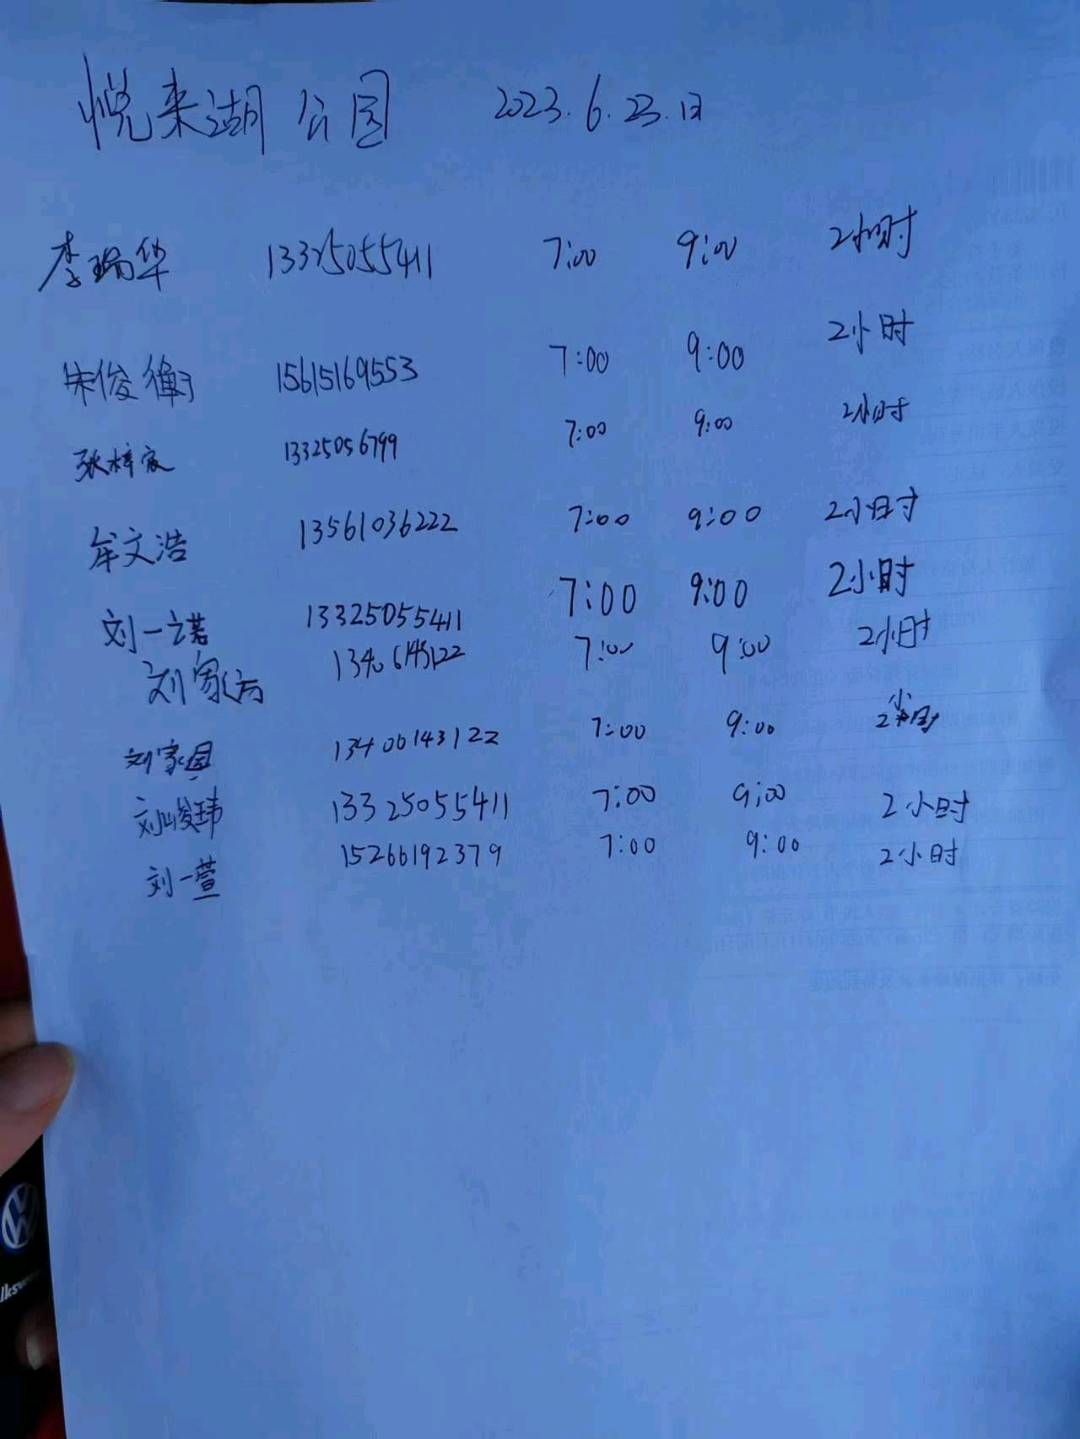 悦来湖公园 2023.6.23.日
李瑞华 13325055411 7:00 9:00 2小时
朱俊衡 15615169553 7:00 9:00 2小时
张梓宸 13325056799 7:00 9:00 2小时
牟文浩 13561036222 7:00 9:00 2小时
刘一诺 13325055411 7:00 9:00 2小时
刘家 7:00 9:00 2小时
刘家国 13400143122 7:00 9:00 2小时
刘峻玮 13325055411 7:00 9:00 2小时
刘一萱 15266192379 7:00 9:00 2小时